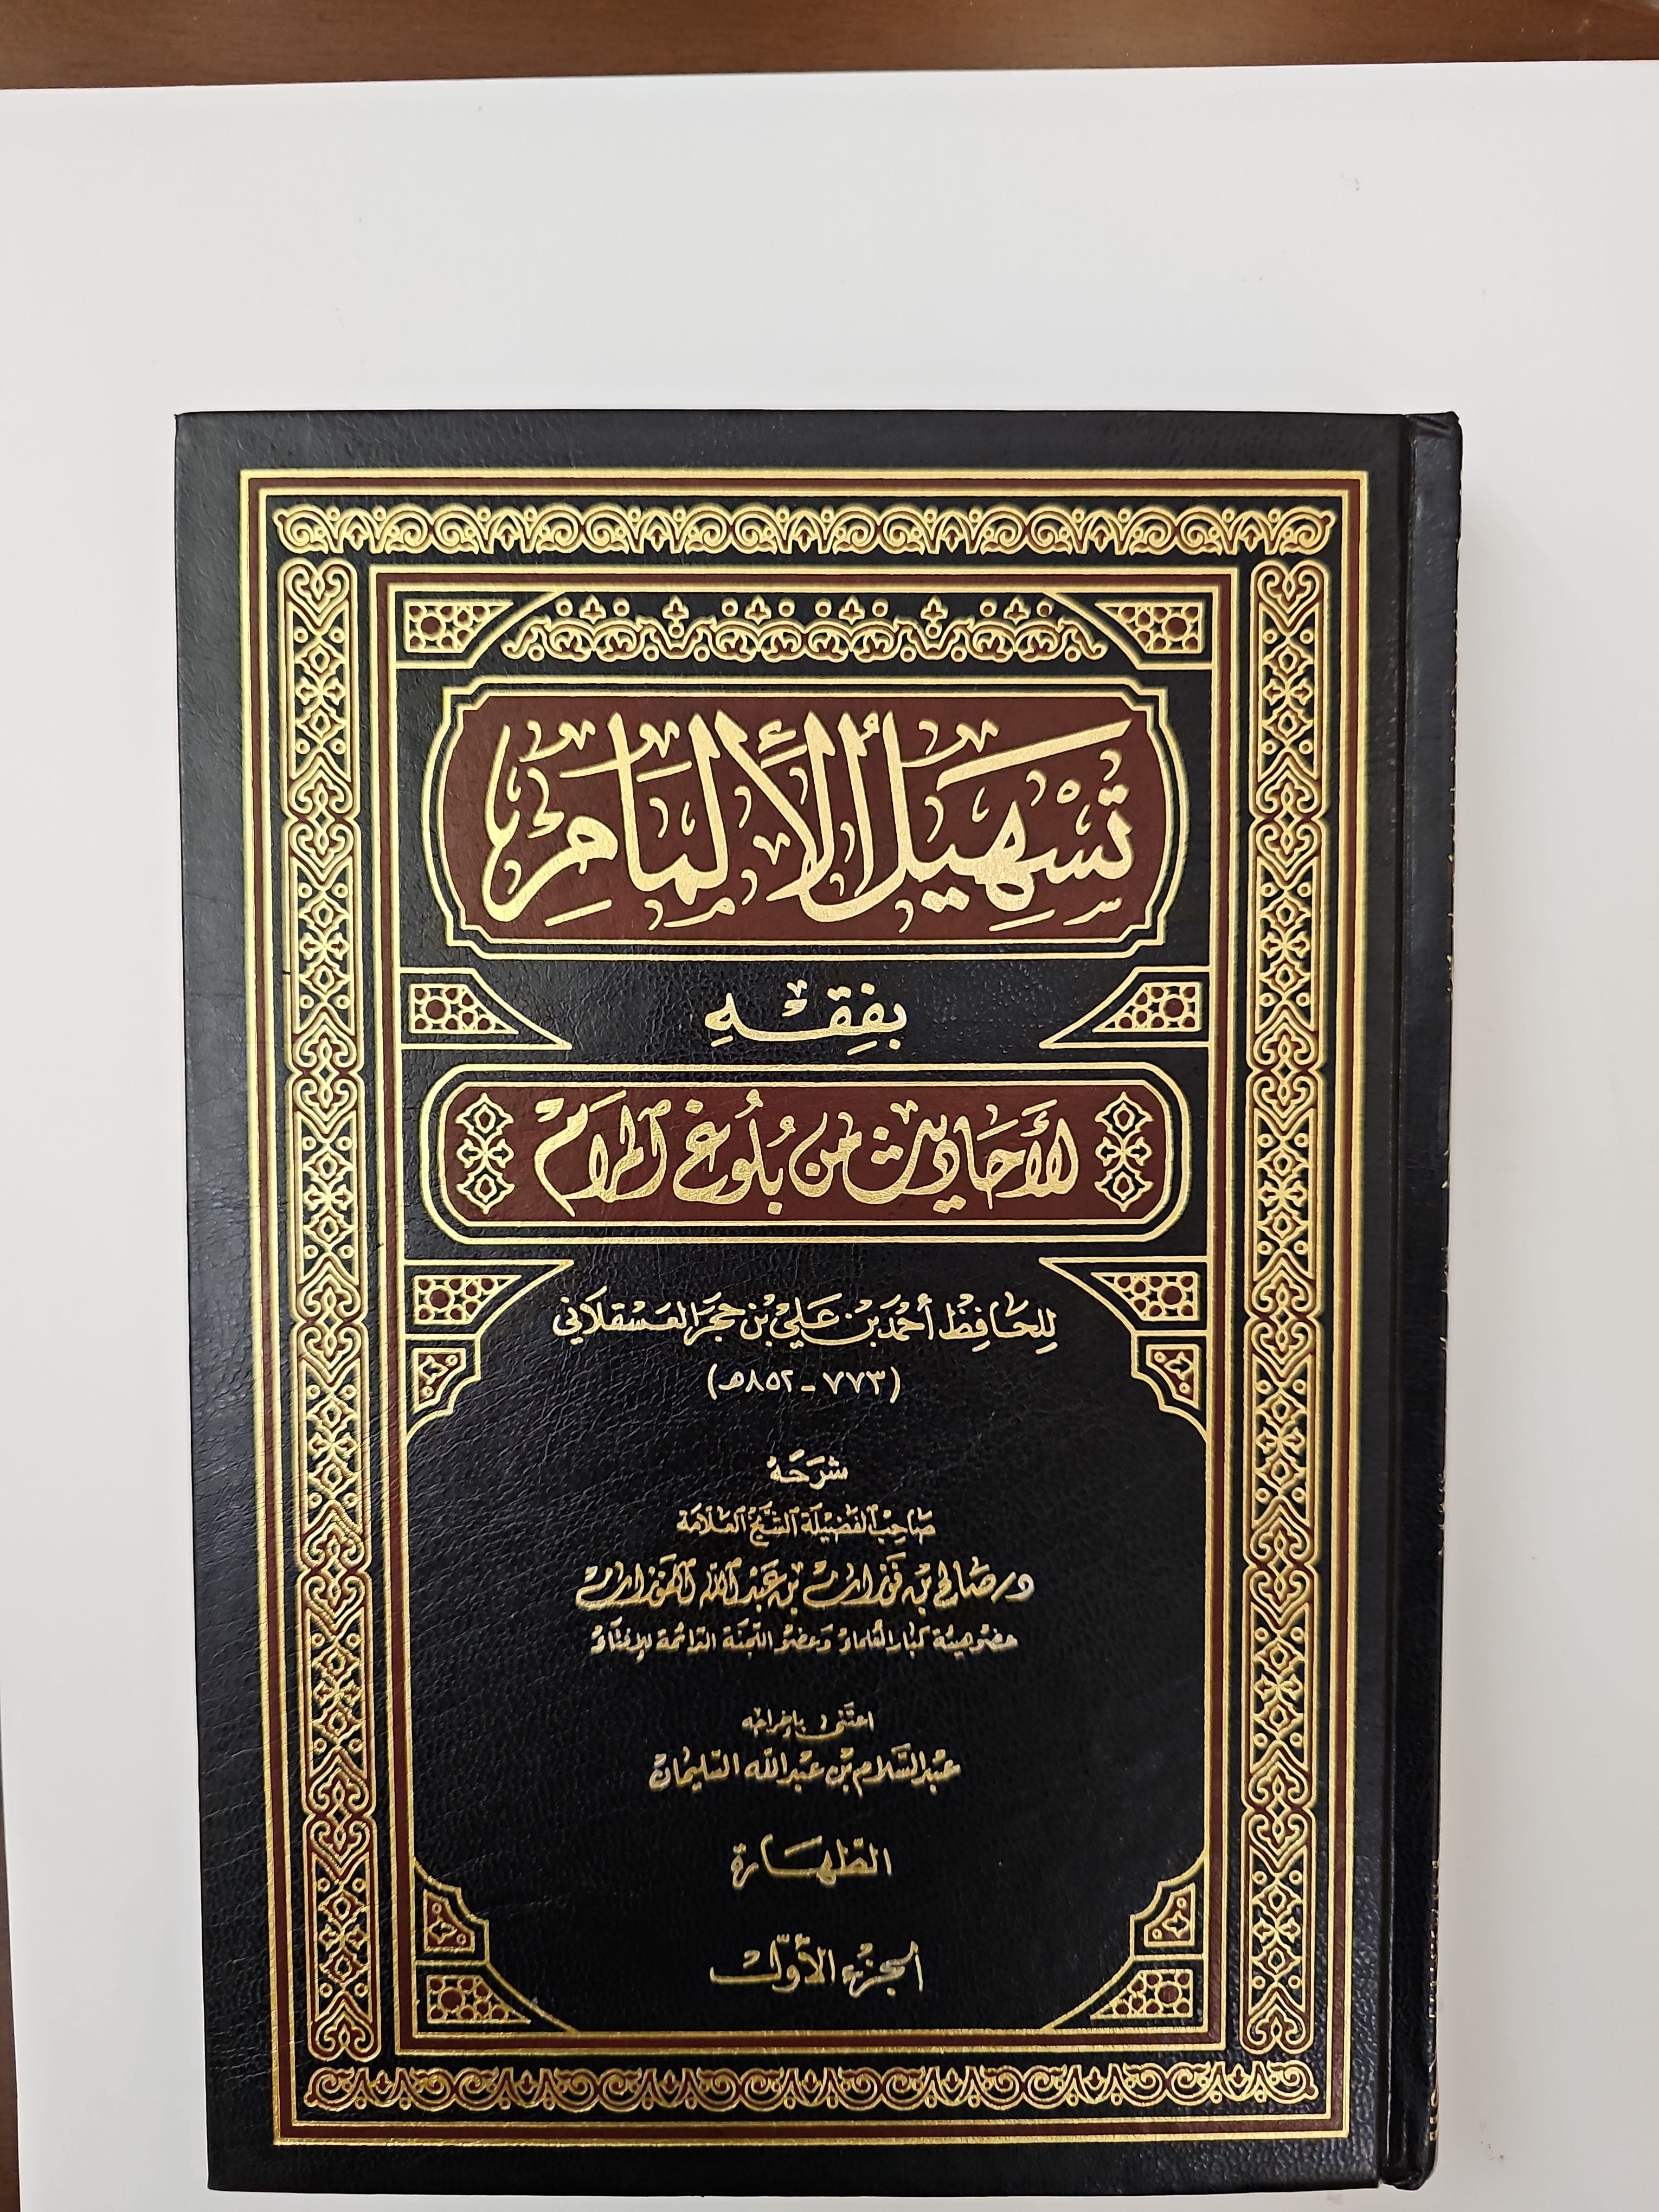 تَسْهِيلُ الْإِلْمَامِ
بِفِقْهِ
لِلْأَحَادِيثِ مِنْ بُلُوغِ الْمَرَامِ
لِلحَافِظ أَحْمَد بْن عَلِيّ بْن حَجَر العَسْقَلَانِي
(٧٧٣ - ٨٥٢هـ)
شَرَحَهُ
صَاحِبُ الفَضِيلَة الشَّيْخ العَلَّامَة
د/ صَالِح بْن فَوْزَان بْن عَبْدِ اللَّه الْفَوْزَان
عضو هيئة كبار العلماء وَعضو اللجنة الدائمة للإفتاء
اعتَنى بإخراجه
عبد السَّلام بْن عبد اللَّه السّليمان
الطّهَارَة
الجزء الأوّل